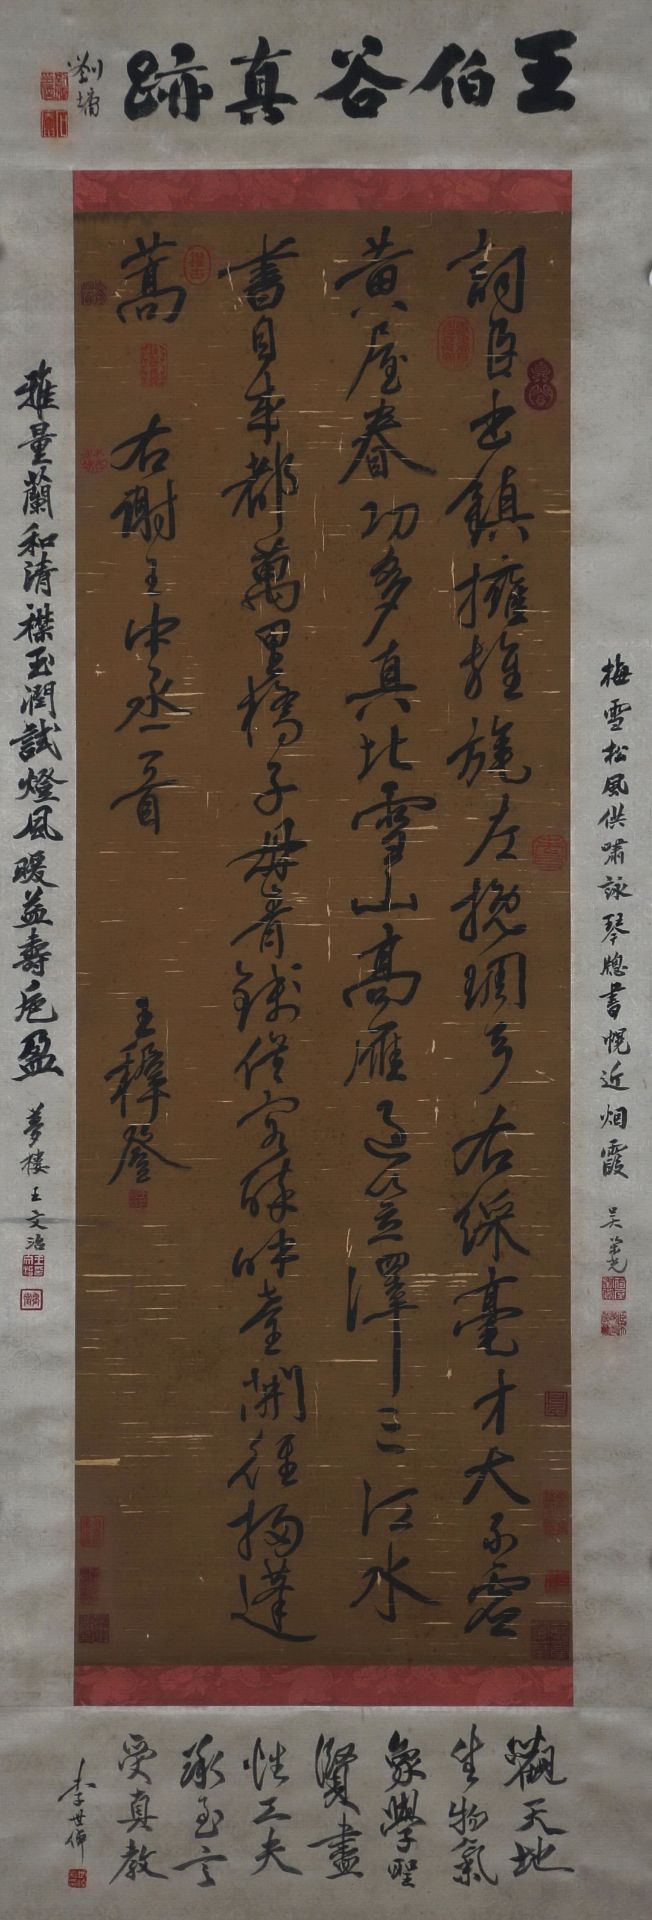 王伯谷真跡
劉墉
詞臣出鎮擁旌旄左挽琱弓右綵毫才大不虛
黃屋眷功多真比雪山高雁過笠澤三江水
書自成都萬里橋子母青錢供客醉呼童開徑掃蓬
蒿 右謝王中丞一首
王穉登
梅雪松風供嘯詠琴牕書幌近烟霞 吴榮光
雅量蘭和清襟玉潤試燈風暖益壽卮盈 夢樓王文治
觀天地
生物氣
象學聖
賢盡
性工夫
承至言
受真教
李世倬